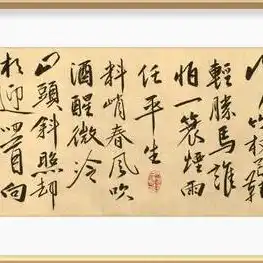 竹杖芒鞋
輕勝馬誰
怕一蓑煙雨
任平生
料峭春風吹
酒醒微冷
山頭斜照却
相迎回首向